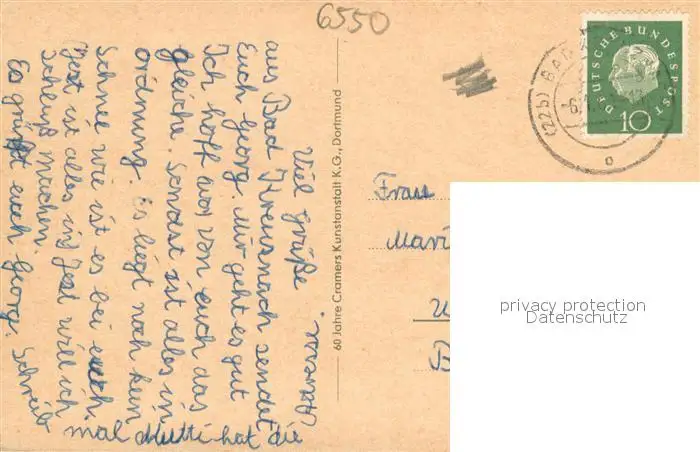 6550
Viel Grüße
aus Bad Kreusnach sendet
Euch Georg. Mir geht es gut
Ich hoff auch von euch das
gleiche. Sonst ist alles in
ordnung. Es liegt noch kein
Schnee wie ist es bei euch.
Jezt ist alles in Jezt will ich
Schluß machen.
Es grüßt euch Georg. Schreib
mal Mutti hat die
60 Jahre Cramers Kunstanstalt K.G., Dortmund
Frau
Mari
(22b) BAD
DEUTSCHE BUNDESPOST
10
privacy protection
Datenschutz